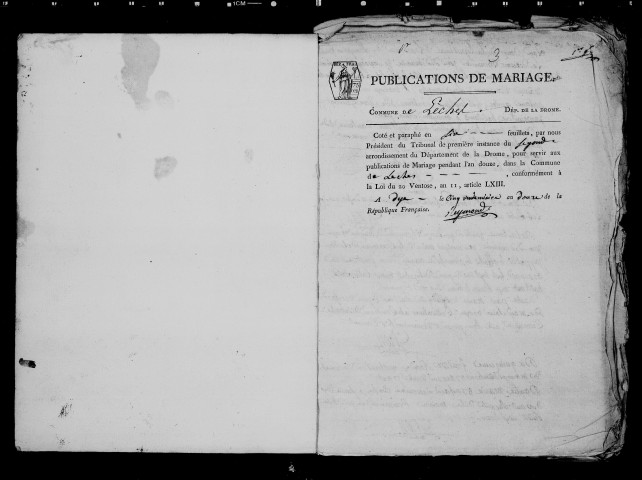 3
PUBLICATIONS DE MARIAGE.
COMMUNE De Leches. DÉP. DE LA DROME.
Coté et paraphé en six feuillets, par nous
Président du Tribunal de première instance du segond
arrondissement du Département de la Drome, pour servir aux
publications de Mariage pendant l'an douze, dans la Commune
de Leches , conformément à
la Loi du 20 Ventose, an 11, article LXIII.
A Dye le cinq vendemiaire an douze de la
République Française. Reymond